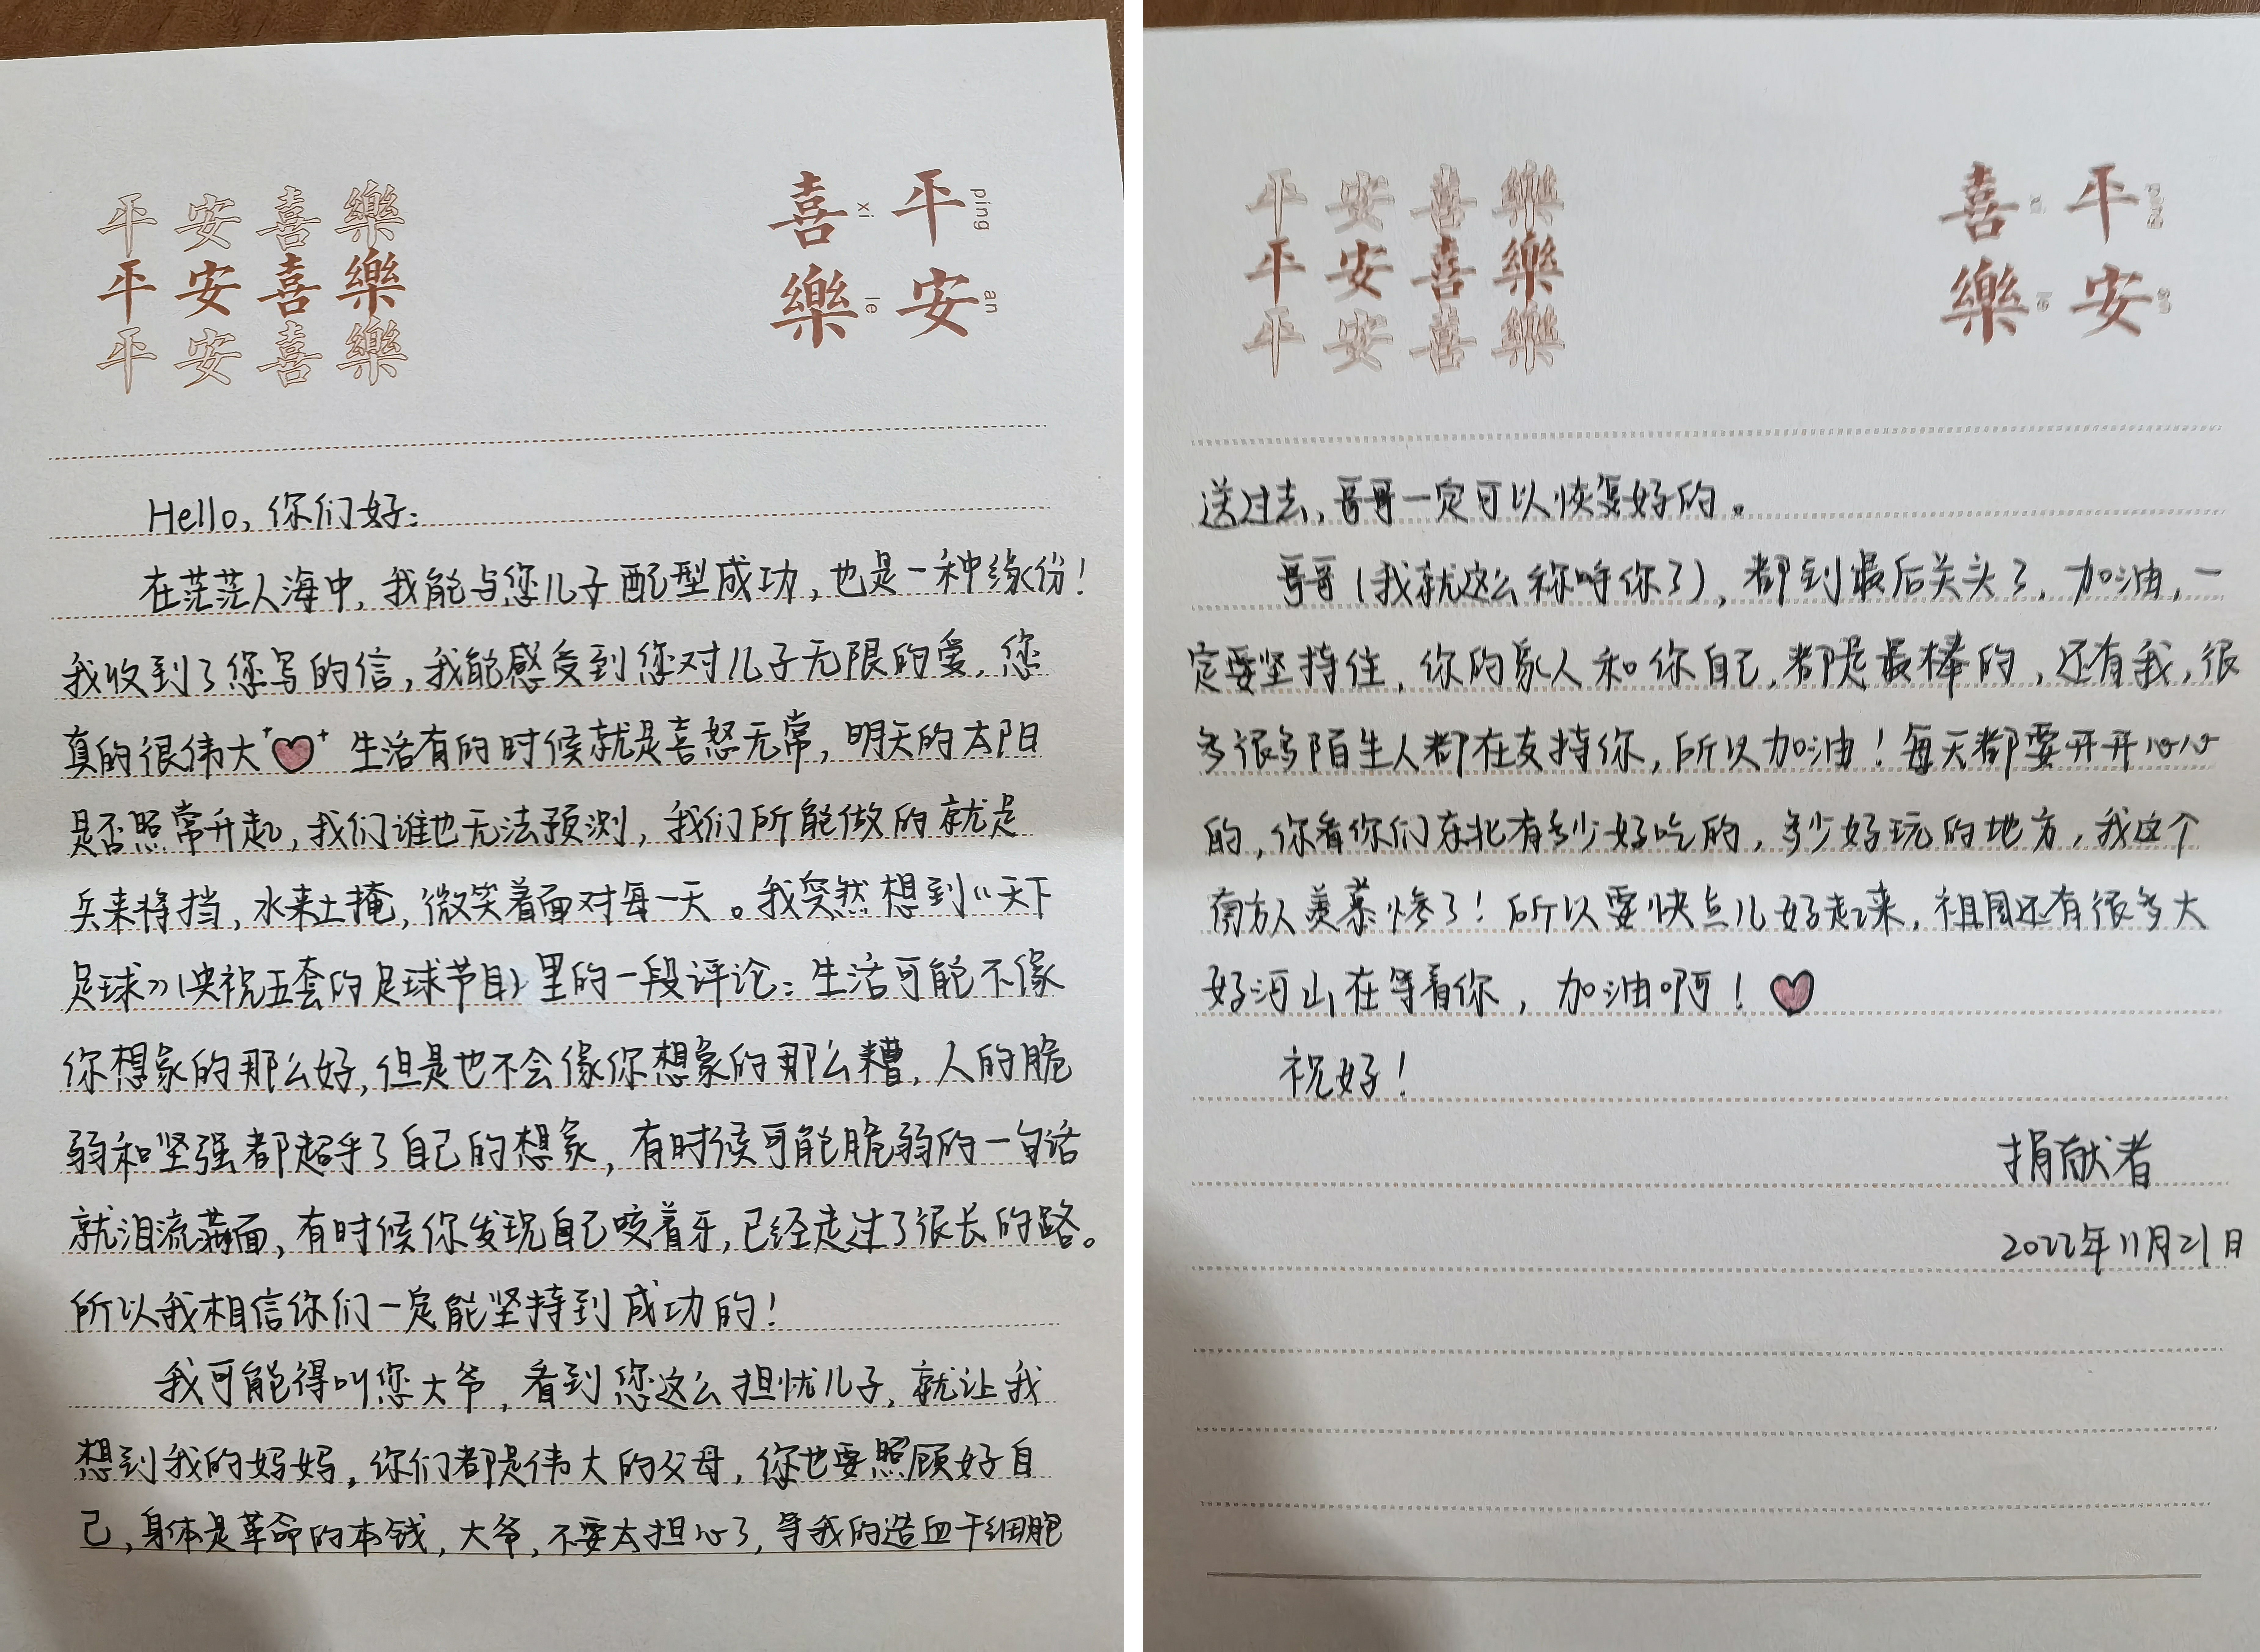 平安喜樂
平安喜樂
平安喜樂
平 ping
安 an
喜 xi
樂 le
Hello, 你们好:
在茫茫人海中, 我能与您儿子配型成功, 也是一种缘份!
我收到了您写的信, 我能感受到您对儿子无限的爱, 您
真的很伟大 生活有的时候就是喜怒无常, 明天的太阳
是否照常升起, 我们谁也无法预测, 我们所能做的就是
兵来将挡, 水来土掩, 微笑着面对每一天。我突然想到《天下
足球》(央视五套的足球节目)里的一段评论: 生活可能不像
你想象的那么好, 但是也不会像你想象的那么糟, 人的脆
弱和坚强都超乎了自己的想象, 有时候可能脆弱的一句话
就泪流满面, 有时候你发现自己咬着牙, 已经走过了很长的路。
所以我相信你们一定能坚持到成功的!
我可能得叫您大爷, 看到您这么担忧儿子, 就让我
想到我的妈妈, 你们都是伟大的父母, 你也要照顾好自
己, 身体是革命的本钱, 大爷, 不要太担心了, 等我的造血干细胞
平安喜樂
平安喜樂
平安喜樂
平
安
喜
樂
送过去, 哥哥一定可以恢复好的。
哥哥(我就这么称呼你了), 都到最后关头了, 加油, 一
定要坚持住, 你的家人和你自己, 都是最棒的, 还有我, 很
多很多陌生人都在支持你, 所以加油! 每天都要开开心心
的, 你看你们东北有多少好吃的, 多少好玩的地方, 我这个
南方人羡慕惨了! 所以要快点儿好起来, 祖国还有很多大
好河山在等着你, 加油啊!
祝好!
捐献者
2022年11月21日